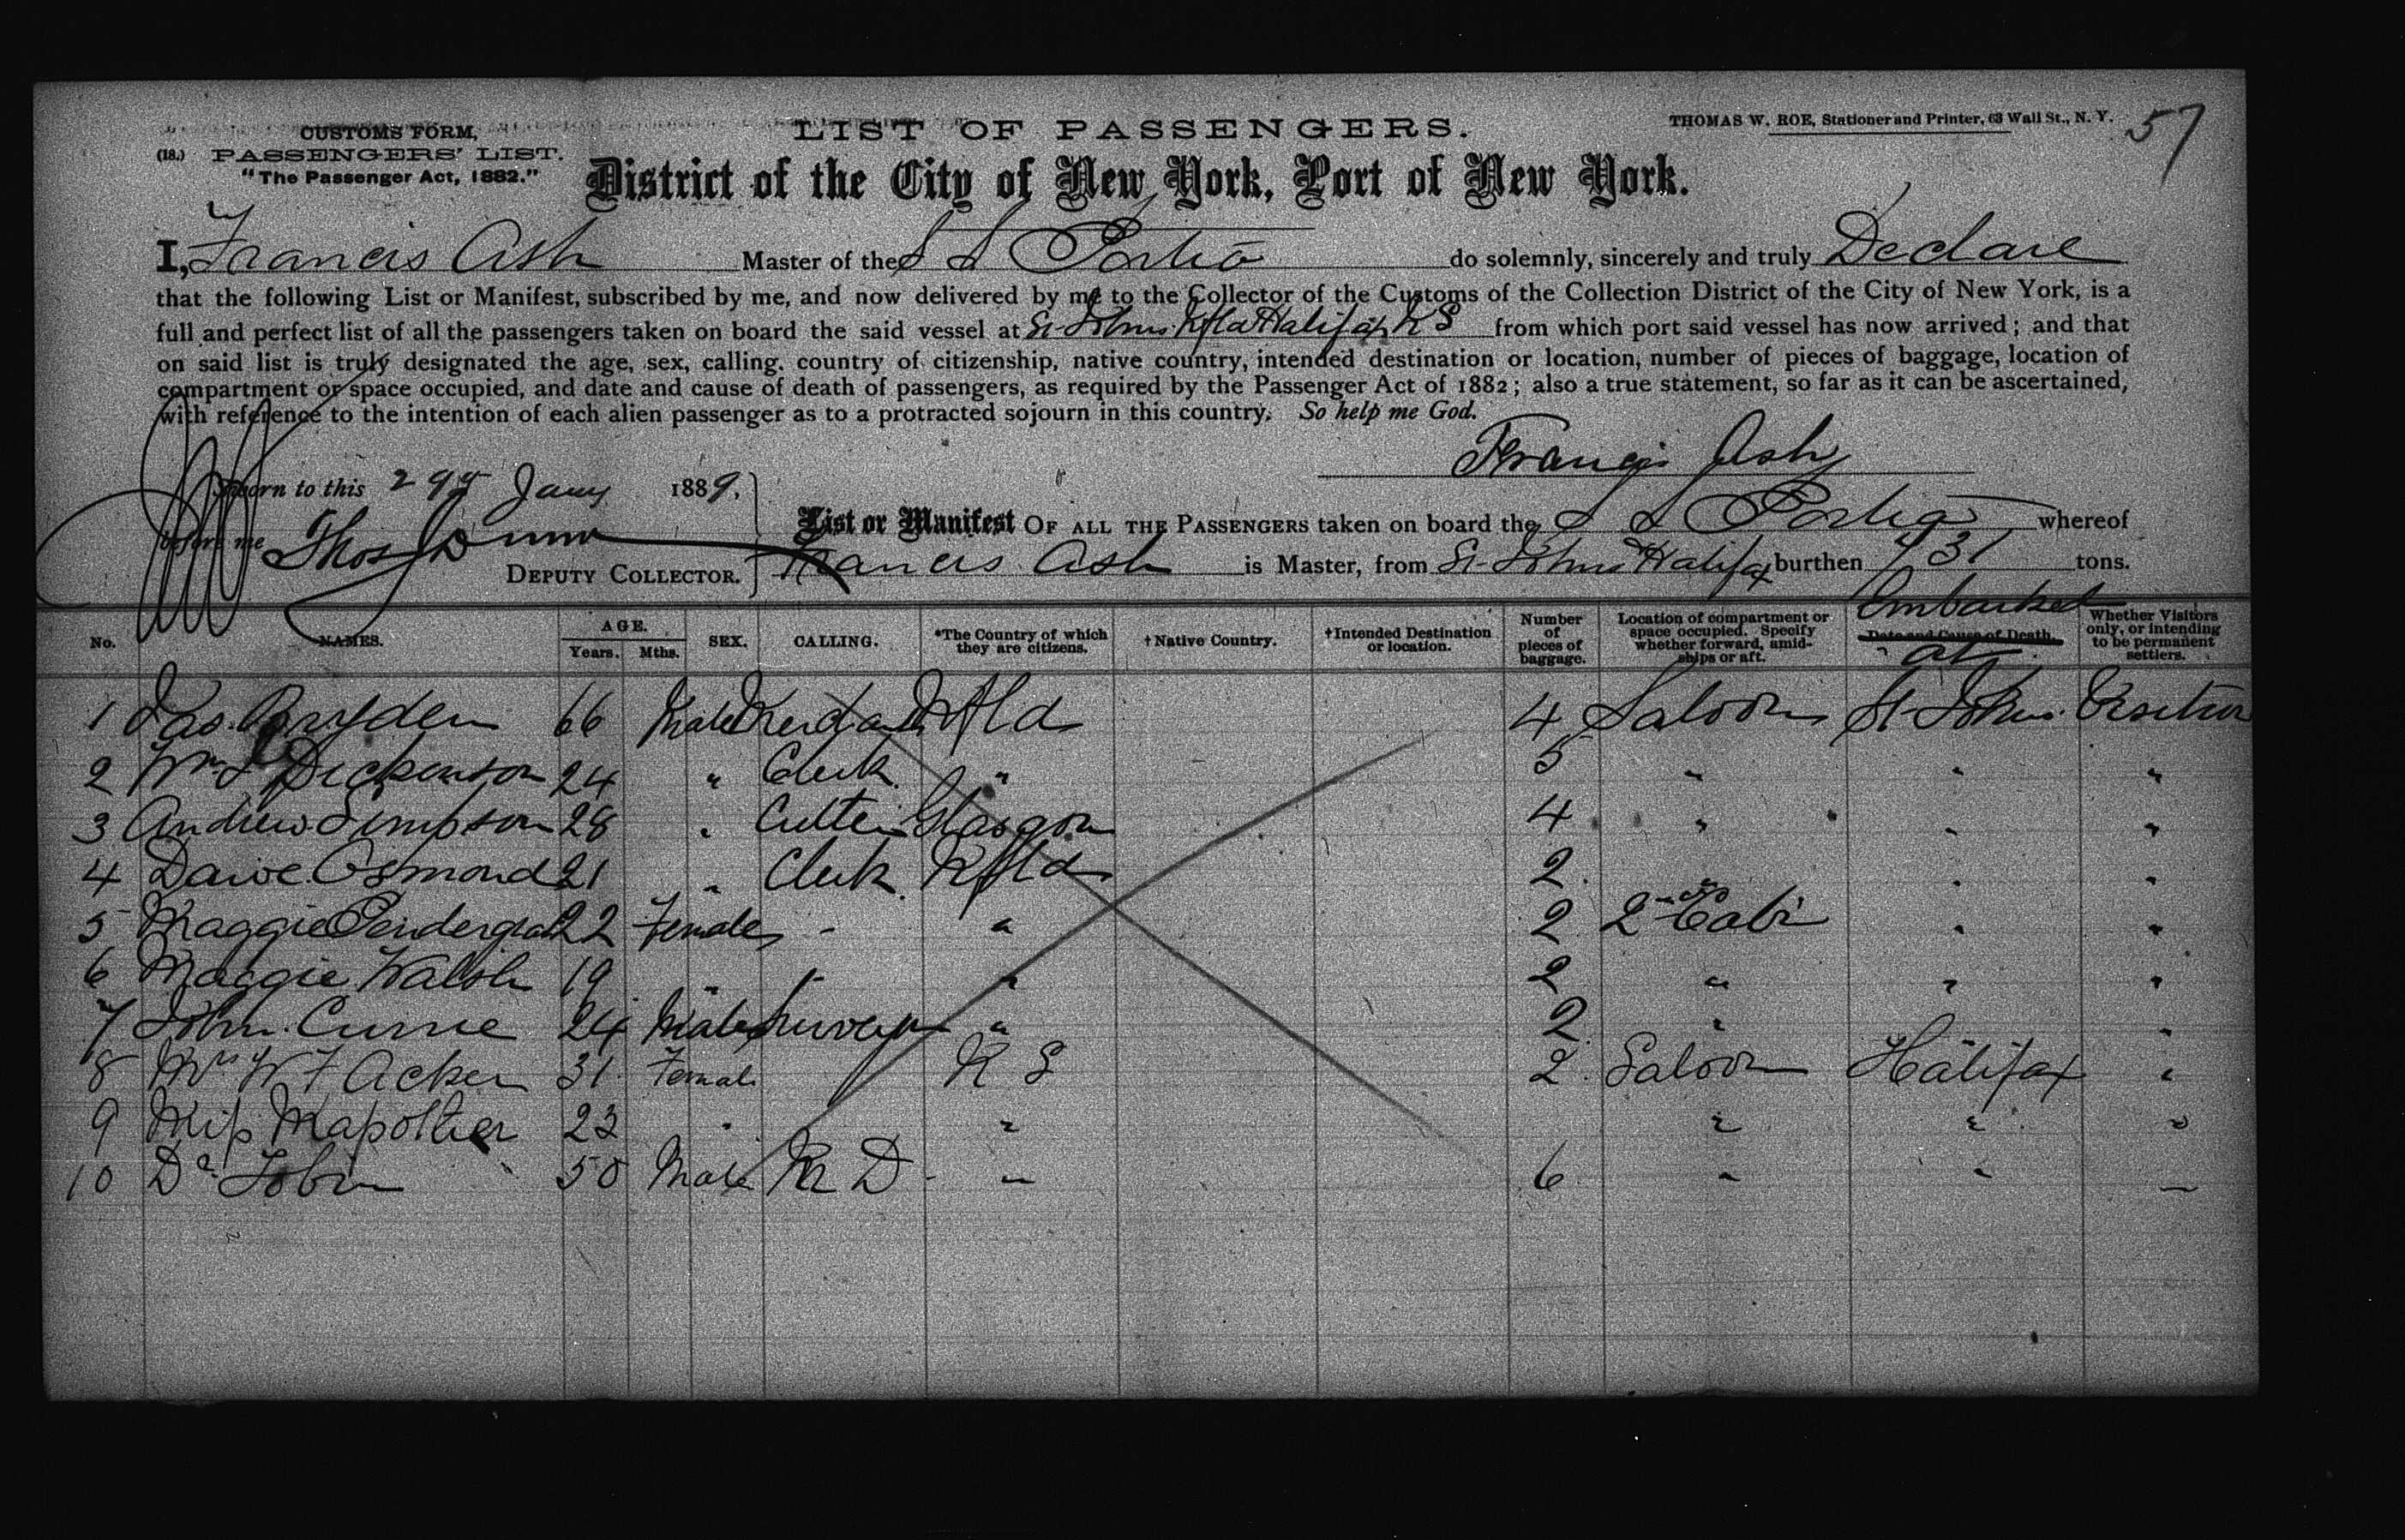 CUSTOMS FORM,
(18.) PASSENGERS' LIST.
"The Passenger Act, 1882."
LIST OF PASSENGERS.
THOMAS W. ROE, Stationer and Printer, 63 Wall St., N. Y.
57
District of the City of New York, Port of New York.
I, Francis Ash Master of the S S Portia do solemnly, sincerely and truly Declare
that the following List or Manifest, subscribed by me, and now delivered by me to the Collector of the Customs of the Collection District of the City of New York, is a
full and perfect list of all the passengers taken on board the said vessel at St. Johns Nfld Halifax N S from which port said vessel has now arrived; and that
on said list is truly designated the age, sex, calling, country of citizenship, native country, intended destination or location, number of pieces of baggage, location of
compartment or space occupied, and date and cause of death of passengers, as required by the Passenger Act of 1882; also a true statement, so far as it can be ascertained,
with reference to the intention of each alien passenger as to a protracted sojourn in this country. So help me God.
Francis Ash
Sworn to this 29 Jany 1889,
before me Thos Dunn
DEPUTY COLLECTOR.
List or Manifest OF ALL THE PASSENGERS taken on board the S S Portia whereof
Francis Ash is Master, from St. Johns & Halifax burthen 731 tons.
No. NAMES. AGE. Years. Mths. SEX. CALLING. *The Country of which they are citizens. †Native Country. †Intended Destination or location. Number of pieces of baggage. Location of compartment or space occupied. Specify whether forward, amidships or aft. Date and Cause of Death. Embarked at Whether Visitors only, or intending to be permanent settlers.
1 Jas. Bryden 66 Male Nfld 4 Saloon St Johns Visitor
2 Wm Dickenson 24 " Clerk " 5 " " "
3 Andrew Simpson 28 " Cutter Glasgow 4 " " "
4 Dawe Osmond 21 " Clerk Nfld 2 " " "
5 Maggie 22 Female - " 2 2nd Cabin " "
6 Maggie Walsh 19 " - " 2 " " "
7 John Currie 24 Male " 2 " "
8 Mrs W F Acker 31 Female N S 2 Saloon Halifax "
9 Miss 23 " " " " "
10 Dr Tobin 50 Male M D - " 6 " " "